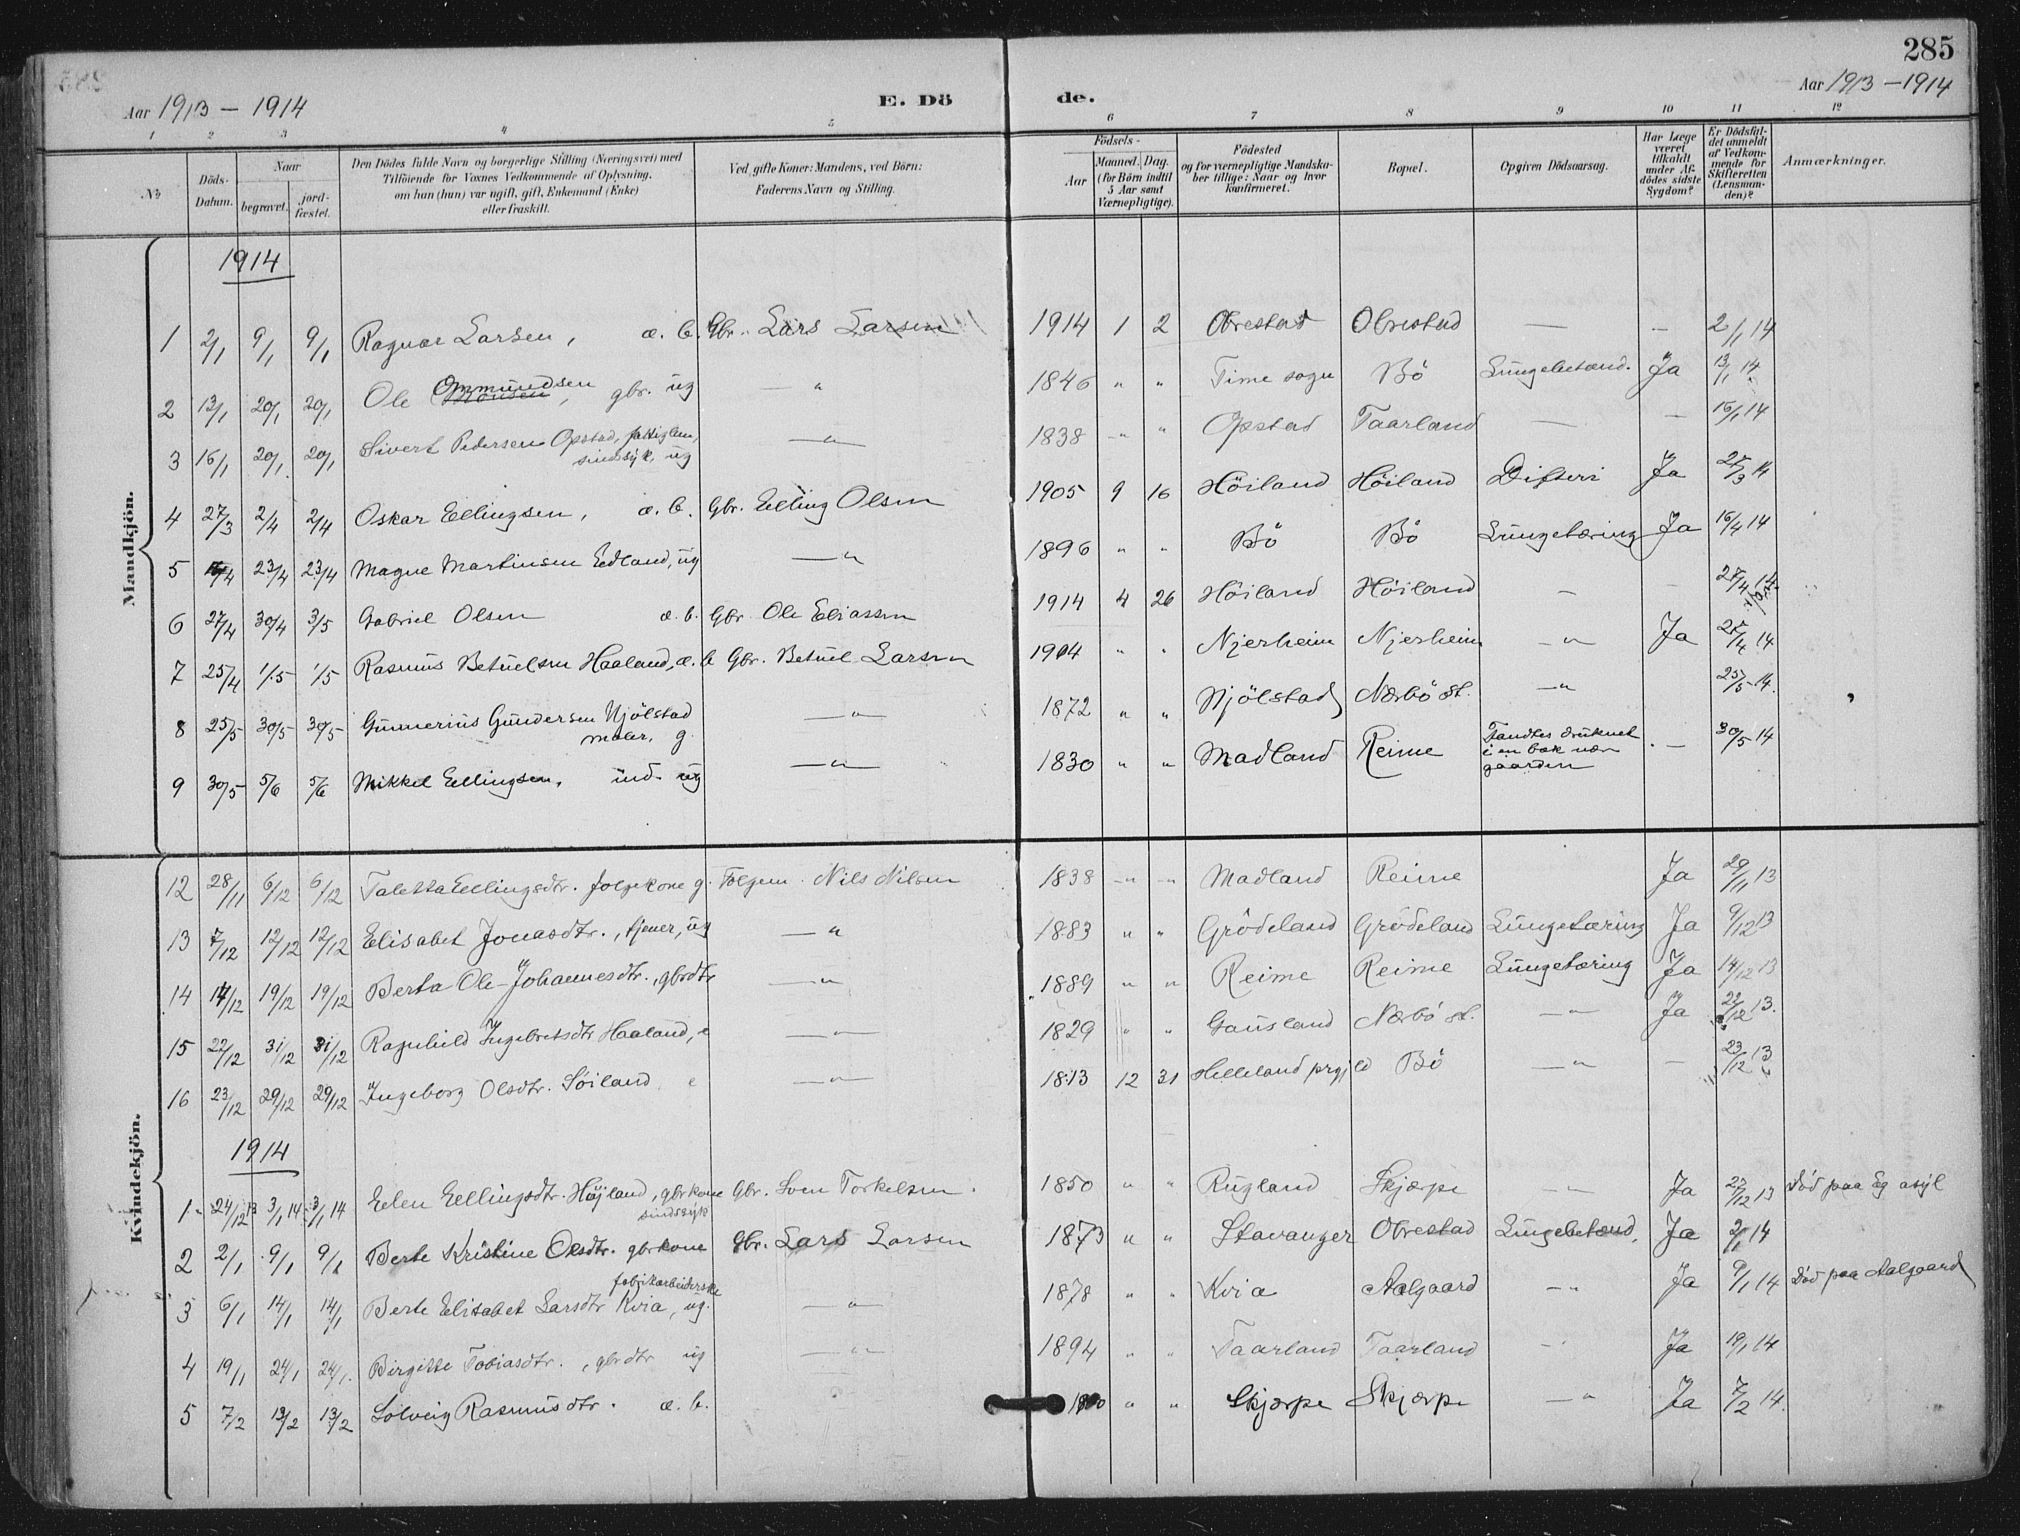 285
Aar 1913 – 1914
E. Dö
de.
Aar 1913 – 1914
1 2 3 4 5 6 7 8 9 10 11 12
No
Döds-Datum.
Naar
begravet.
jord-fæstet.
Den Dödes fulde Navn og borgerlige Stilling (Næringsvei) med
Tilföiende for Voxnes Vedkommende af Oplysning,
om han (hun) var ugift, gift, Enkemand (Enke)
eller fraskilt.
Ved gifte Koner: Mandens, ved Börn:
Faderens Navn og Stilling.
Födsels-
Aar
Maaned. Dag.
(for Börn indtil
5 Aar samt
Værnepligtige).
Födested
og for værnepligtige Mandska-
ber tillige: Naar og hvor
konfirmeret.
Bopæl.
Opgiven Dödsaarsag.
Har Læge
været
tilkaldt
under Af-
dödes sidste
Sygdom?
Er Dödsfal-
det anmeldt
af Vedkom-
mende for
Skifteretten
(Lensman-
den)?
Anmærkninger.
Mandkjön.
1914
1 2/1 9/1 9/1 Ragnar Larsen, æ. b. Gbr. Lars Larsen 1914 1 2 Obrestad Obrestad — – 2/1 14
2 13/1 20/1 20/1 Ole Ommundsen, gbr. ug — " 1846 " " Time sogn Bö Lungebetænd. Ja 13/1 14.
3 16/1 20/1 20/1 Sivert Pedersen Opstad, fattiglem, sindssyk, ug — " — 1838 " " Opstad Taarland — – 16/1 14
4 27/3 2/4 2/4 Oskar Ellingsen, æ. b. Gbr. Elling Olsen 1905 9 16 Höiland Höiland Difteri Ja 27/3 14
5 23/4 23/4 Magne Martinsen Edland, ug — " 1896 " " Bö Bö Lungetæring Ja 16/4 14
6 27/4 30/4 3/5 Gabriel Olsen æ. b. Gbr. Ole Eliassen 1914 4 26 Höiland Höiland — – 27/4 14
7 25/4 1/5 1/5 Rasmus Betuelsen Haaland, æ. b Gbr. Betuel Larsen 1904 " " Njerheim Njerheim — " Ja 25/4 14
8 25/5 30/5 30/5 Gunnerius Gundersen Njölstad maler, g. — " — 1872 " " Njölstad Nærbö st. — " 25/5 14.
9 30/5 5/6 5/6 Mikkel Ellingsen, ind. ug — " — 1830 " " Madland Reime Fandtes druknet i en bæk nær gaarden — 30/5 14
Kvindekjön.
12 28/11 6/12 6/12 Taletta Ellingsdtr. folgekone g. Folgem. Nils Nilsen 1838 " " Madland Reime Ja 29/11 13
13 7/12 12/12 12/12 Elisabet Jonasdtr., tjener, ug — " 1883 " " Grödeland Grödeland Lungetæring Ja 9/12 13
14 14/12 19/12 19/12 Berta Ole-Johannesdtr., gbrdtr — " 1889 " " Reime Reime Lungetæring Ja 14/12 13
15 22/12 31/12 31/12 Ragnhild Ingebretsdtr Haaland, e — " — 1829 " " Gausland Nærbö st. — " Ja 22/12 13.
16 23/12 29/12 29/12 Ingeborg Olsdtr. Söiland e — " — 1813 12 31 Helleland prgjld Bö — " – 23/12 13
1914
1 24/12 13 3/1 14 3/1 14 Elen Ellingsdtr. Höjland, gbrkone sindssyk Gbr. Sven Torkelsen. 1850 " " Rugland Skjærpe — " Ja 27/12 13 Död paa Eg asyl
2 2/1 9/1 9/1 Berte Kristine Olsdtr. gbrkone Gbr. Lars Larsen 1873 " " Stavanger Obrestad Lungebetænd. Ja 2/1 14
3 6/1 14/1 14/1 Berte Elisabet Larsdtr Kvia, fabrikarbeiderske ug. — " — 1878 " " Kvia Aalgaard — " Ja 9/1 14 Död paa Aalgaard
4 19/1 24/1 24/1 Birgitte Tobiasdtr., gbrdtr ug — " — 1894 " " Taarland Taarland — " Ja 19/1 14
5 7/2 13/2 13/2 Solveig Rasmusdtr. æ. b. " " Skjærpe Skjærpe — " Ja 7/2 14.